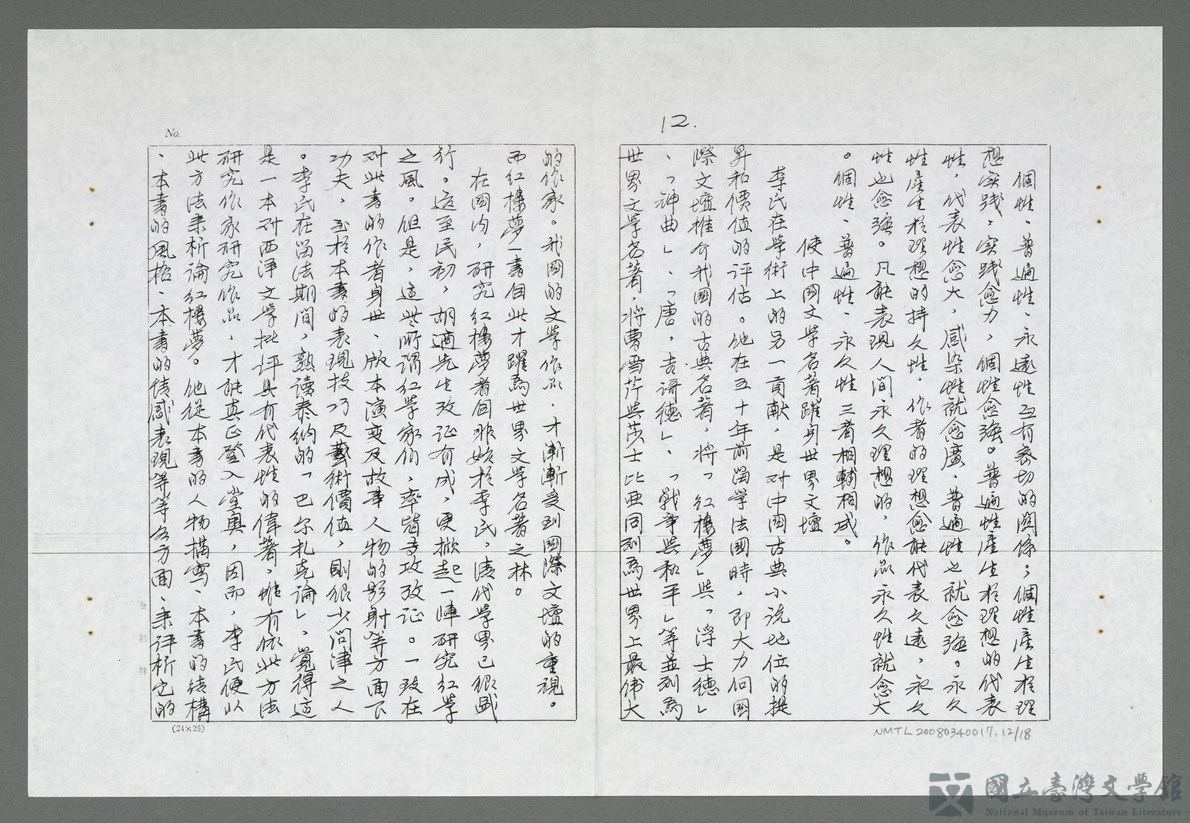 12.
個性、普遍性、永遠性互有密切的關係；個性產生於理
想实踐，实踐愈力，個性愈強。普遍性產生於理想的代表
性，代表性愈大，感染性就愈廣，普遍性也就愈強。永久
性產生於理想的持久性，作者的理想愈能代表久遠，永久
性也愈強。凡能表現人间永久理想的，作品永久性就愈大
。個性、普遍性、永久性三者相輔相成。
使中國文學名著躍身世界文壇
李氏在學術上的另一貢献，是对中國古典小说地位的提
昇和價值的评估。他在五十年前留學法國時，即大力向國
際文壇推介我國的古典名著，將「紅楼夢」與「浮士德」
、「神曲」、「唐·吉訶德」、「戰争與和平」等並列為
世界文學名著，將曹雪芹與莎士比亞同列為世界上最偉大
No.
的作家。我國的文學作品，才漸漸受到國際文壇的重視。
而紅樓夢一書因此才躍為世界文學名著之林。
在國内，研究紅樓夢者固非始於李氏，清代學界已很盛
行。迨至民初，胡適先生攷证有成，更掀起一陣研究紅學
之風。但是，這些所謂紅學家们，率皆專攻攷证。一致在
对此書的作者身世、版本演变及故事人物的影射等方面下
功夫，至於本書的表現技巧及藝術價值，則很少问津之人
。李氏在留法期间，熟读泰纳的「巴尔札克論」，覺得這
是一本对西洋文學批评具有代表性的偉著，惟有依此方法
研究作家研究作品，才能真正登入堂奥，因而，李氏便以
此方法来析論紅楼夢。他從本書的人物描寫、本書的结構
、本書的風格、本書的情感表現等等各方面，来评析它的
(24×25)
NMTL20080340017.12/18
國立臺灣文學館
National Museum of Taiwan Literature